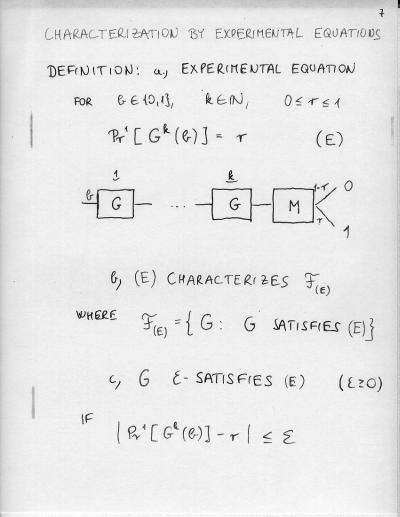 7
CHARACTERIZATION BY EXPERIMENTAL EQUATIONS
DEFINITION: a, EXPERIMENTAL EQUATION
FOR b ∈ {0,1}, k ∈ ℕ, 0 ≤ r ≤ 1
Pr¹[G^k(b)] = r (E)
1 k 1-r 0
b G ... G M
r 1
b, (E) CHARACTERIZES ℱ_(E)
WHERE ℱ_(E) = { G : G SATISFIES (E)}
c, G ε-SATISFIES (E) (ε≥0)
IF
|Pr¹[G^k(b)] - r| ≤ ε